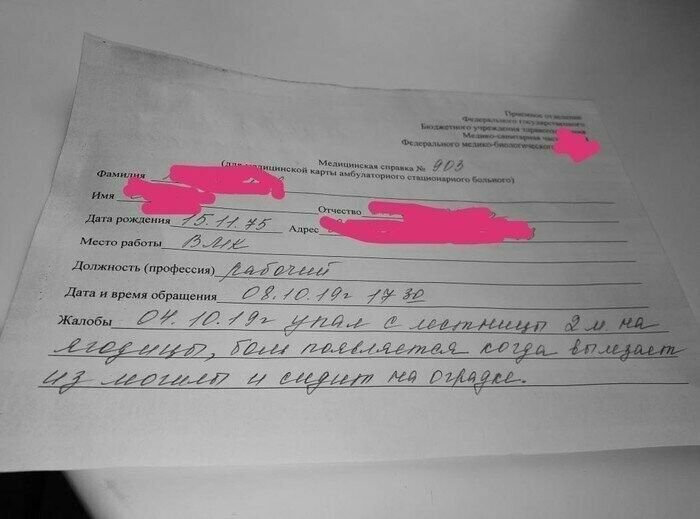 Приемное отделение
Федерального государственного
Бюджетного учреждения здравоохранения
Медико-санитарная часть
Федерального медико-биологического
Медицинская справка № 903
(для медицинской карты амбулаторного стационарного больного)
Фамилия
Имя Отчество
Дата рождения 15.11.75 Адрес
Место работы ВМК
Должность (профессия) рабочий
Дата и время обращения 08.10.19г 17 30
Жалобы 04.10.19г упал с лестницы 2 м на
ягодицы, боль появляется когда вылезает
из могилы и сидит на оградке.